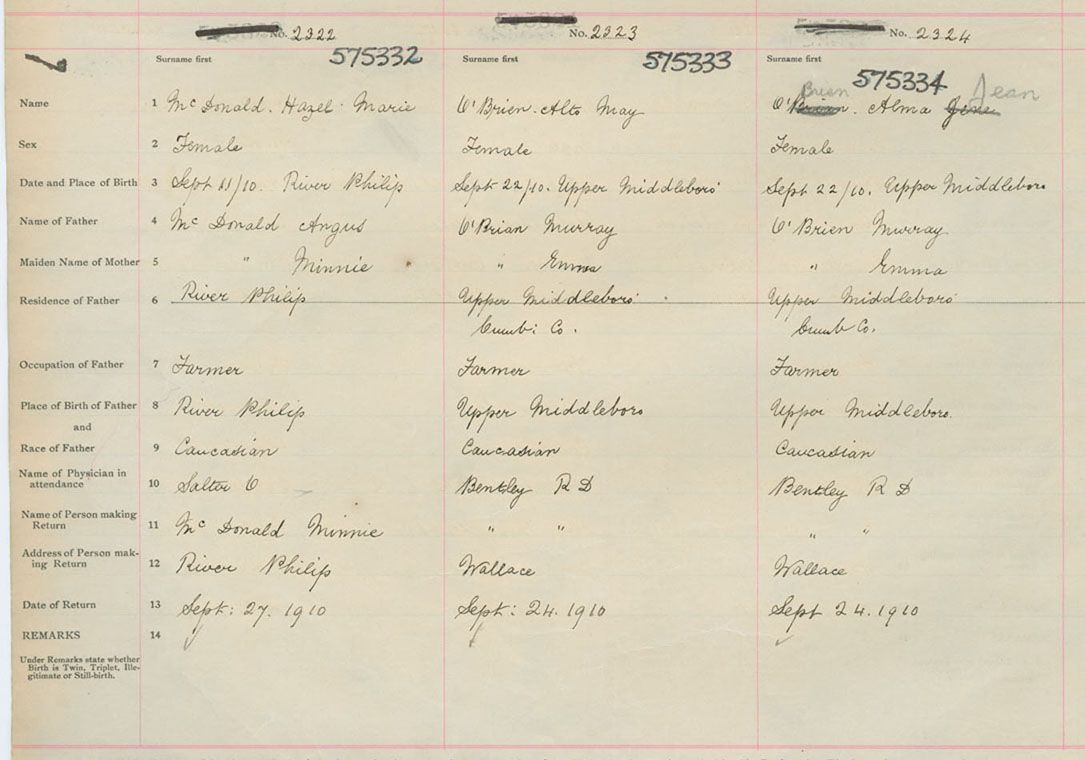 No. 2322 No. 2323 No. 2324
Surname first 575332 Surname first 575333 Surname first 575334
Brien Jean
Name 1 McDonald. Hazel Marie O'Brien. Alta May O'Brian. Alma Jene
Sex 2 Female Female Female
Date and Place of Birth 3 Sept 11/10. River Philip Sept 22/10. Upper Middleboro' Sept 22/10. Upper Middleboro
Name of Father 4 McDonald Angus O'Brian Murray O'Brien Murray
Maiden Name of Mother 5 " Minnie " Emma " Emma
Residence of Father 6 River Philip Upper Middleboro' Upper Middleboro'
Cumb: Co. Cumb Co.
Occupation of Father 7 Farmer Farmer Farmer
Place of Birth of Father 8 River Philip Upper Middleboro Upper Middleboro.
and
Race of Father 9 Caucasian Caucasian Caucasian
Name of Physician in
attendance 10 Salter C Bentley R D Bentley R D
Name of Person making
Return 11 McDonald Minnie " " " "
Address of Person mak-
ing Return 12 River Philip Wallace Wallace
Date of Return 13 Sept: 27. 1910 Sept: 24. 1910 Sept 24. 1910
REMARKS 14
Under Remarks state whether
Birth is Twin, Triplet, Ille-
gitimate or Still-birth.